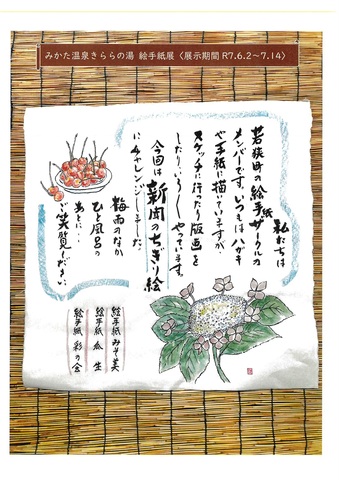 みかた温泉きららの湯 絵手紙展〈展示期間 R7.6.2～7.14〉
私たちは
若狭町の絵手紙サークルの
メンバーです。いつもはハガキ
や手紙に描いていますが、
スケッチに行ったり版画を
したり、いろ〱やっています。
今回は新聞のちぎり絵
にチャレンジしました。
梅雨のなか
ひと風呂の
あとに…
ご笑覧ください。
絵手紙 みそ美
絵手紙 瓜生
絵手紙 彩の会